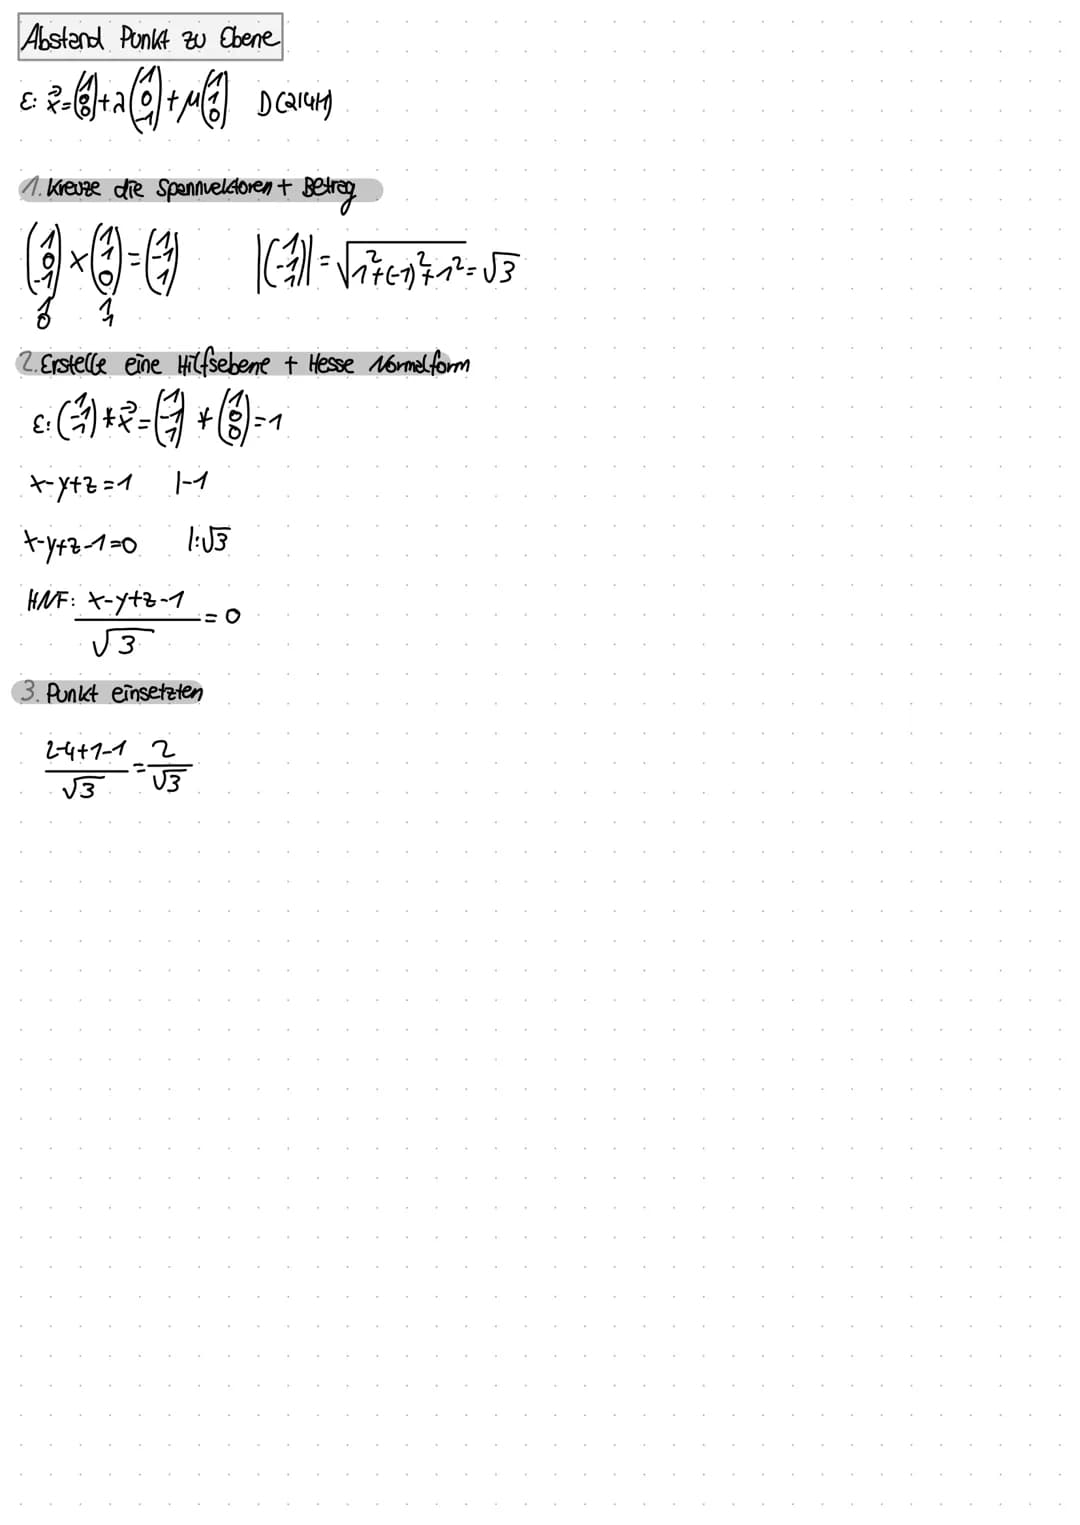 Abstand Punkt zu Ebene
E: x⃗ = (1 0 0) + λ (1 0 -1) + μ (1 1 0) D(2|4|1)
1. Kreuze die Spannvektoren + Betrag
(1 0 -1) × (1 1 0) = (1 -1 1) |(1 -1 1)| = √1²+(-1)²+1² = √3
1 1
0 1
2. Erstelle eine Hilfsebene + Hesse Normalform
E: (1 -1 1) * x⃗ = (1 -1 1) * (1 0 0) = 1
x-y+z=1 |-1
x-y+z-1=0 |:√3
HNF: x-y+z-1 / √3 = 0
3. Punkt einsetzten
2-4+1-1 / √3 = 2 / √3